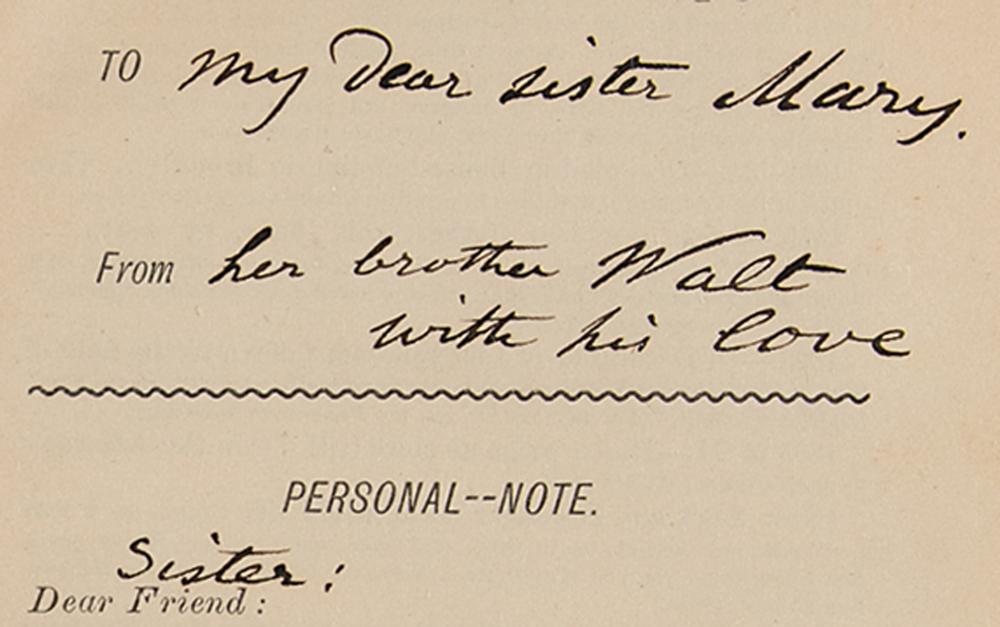 TO my dear sister Mary.
From her brother Walt
with his love
PERSONAL--NOTE.
Sister:
Dear Friend: